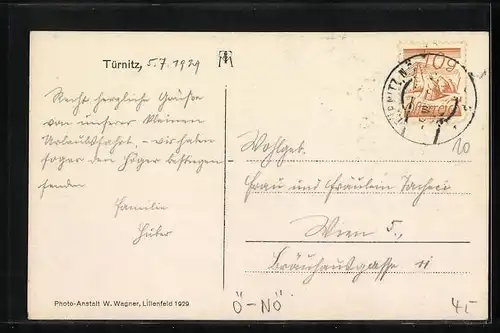 Türnitz, 5.7.1929
Recht herzliche Grüße
von unserer kleinen
Urlaubsfahrt, – wir haben
sogar den Höger bestiegen
Familie
Huber
10g
Wohlgeb.
Frau und Fräulein
Wien 5.,
Bräuhausgasse 11
10
Photo-Anstalt W. Wagner, Lilienfeld 1929
Ö-NÖ
4,-